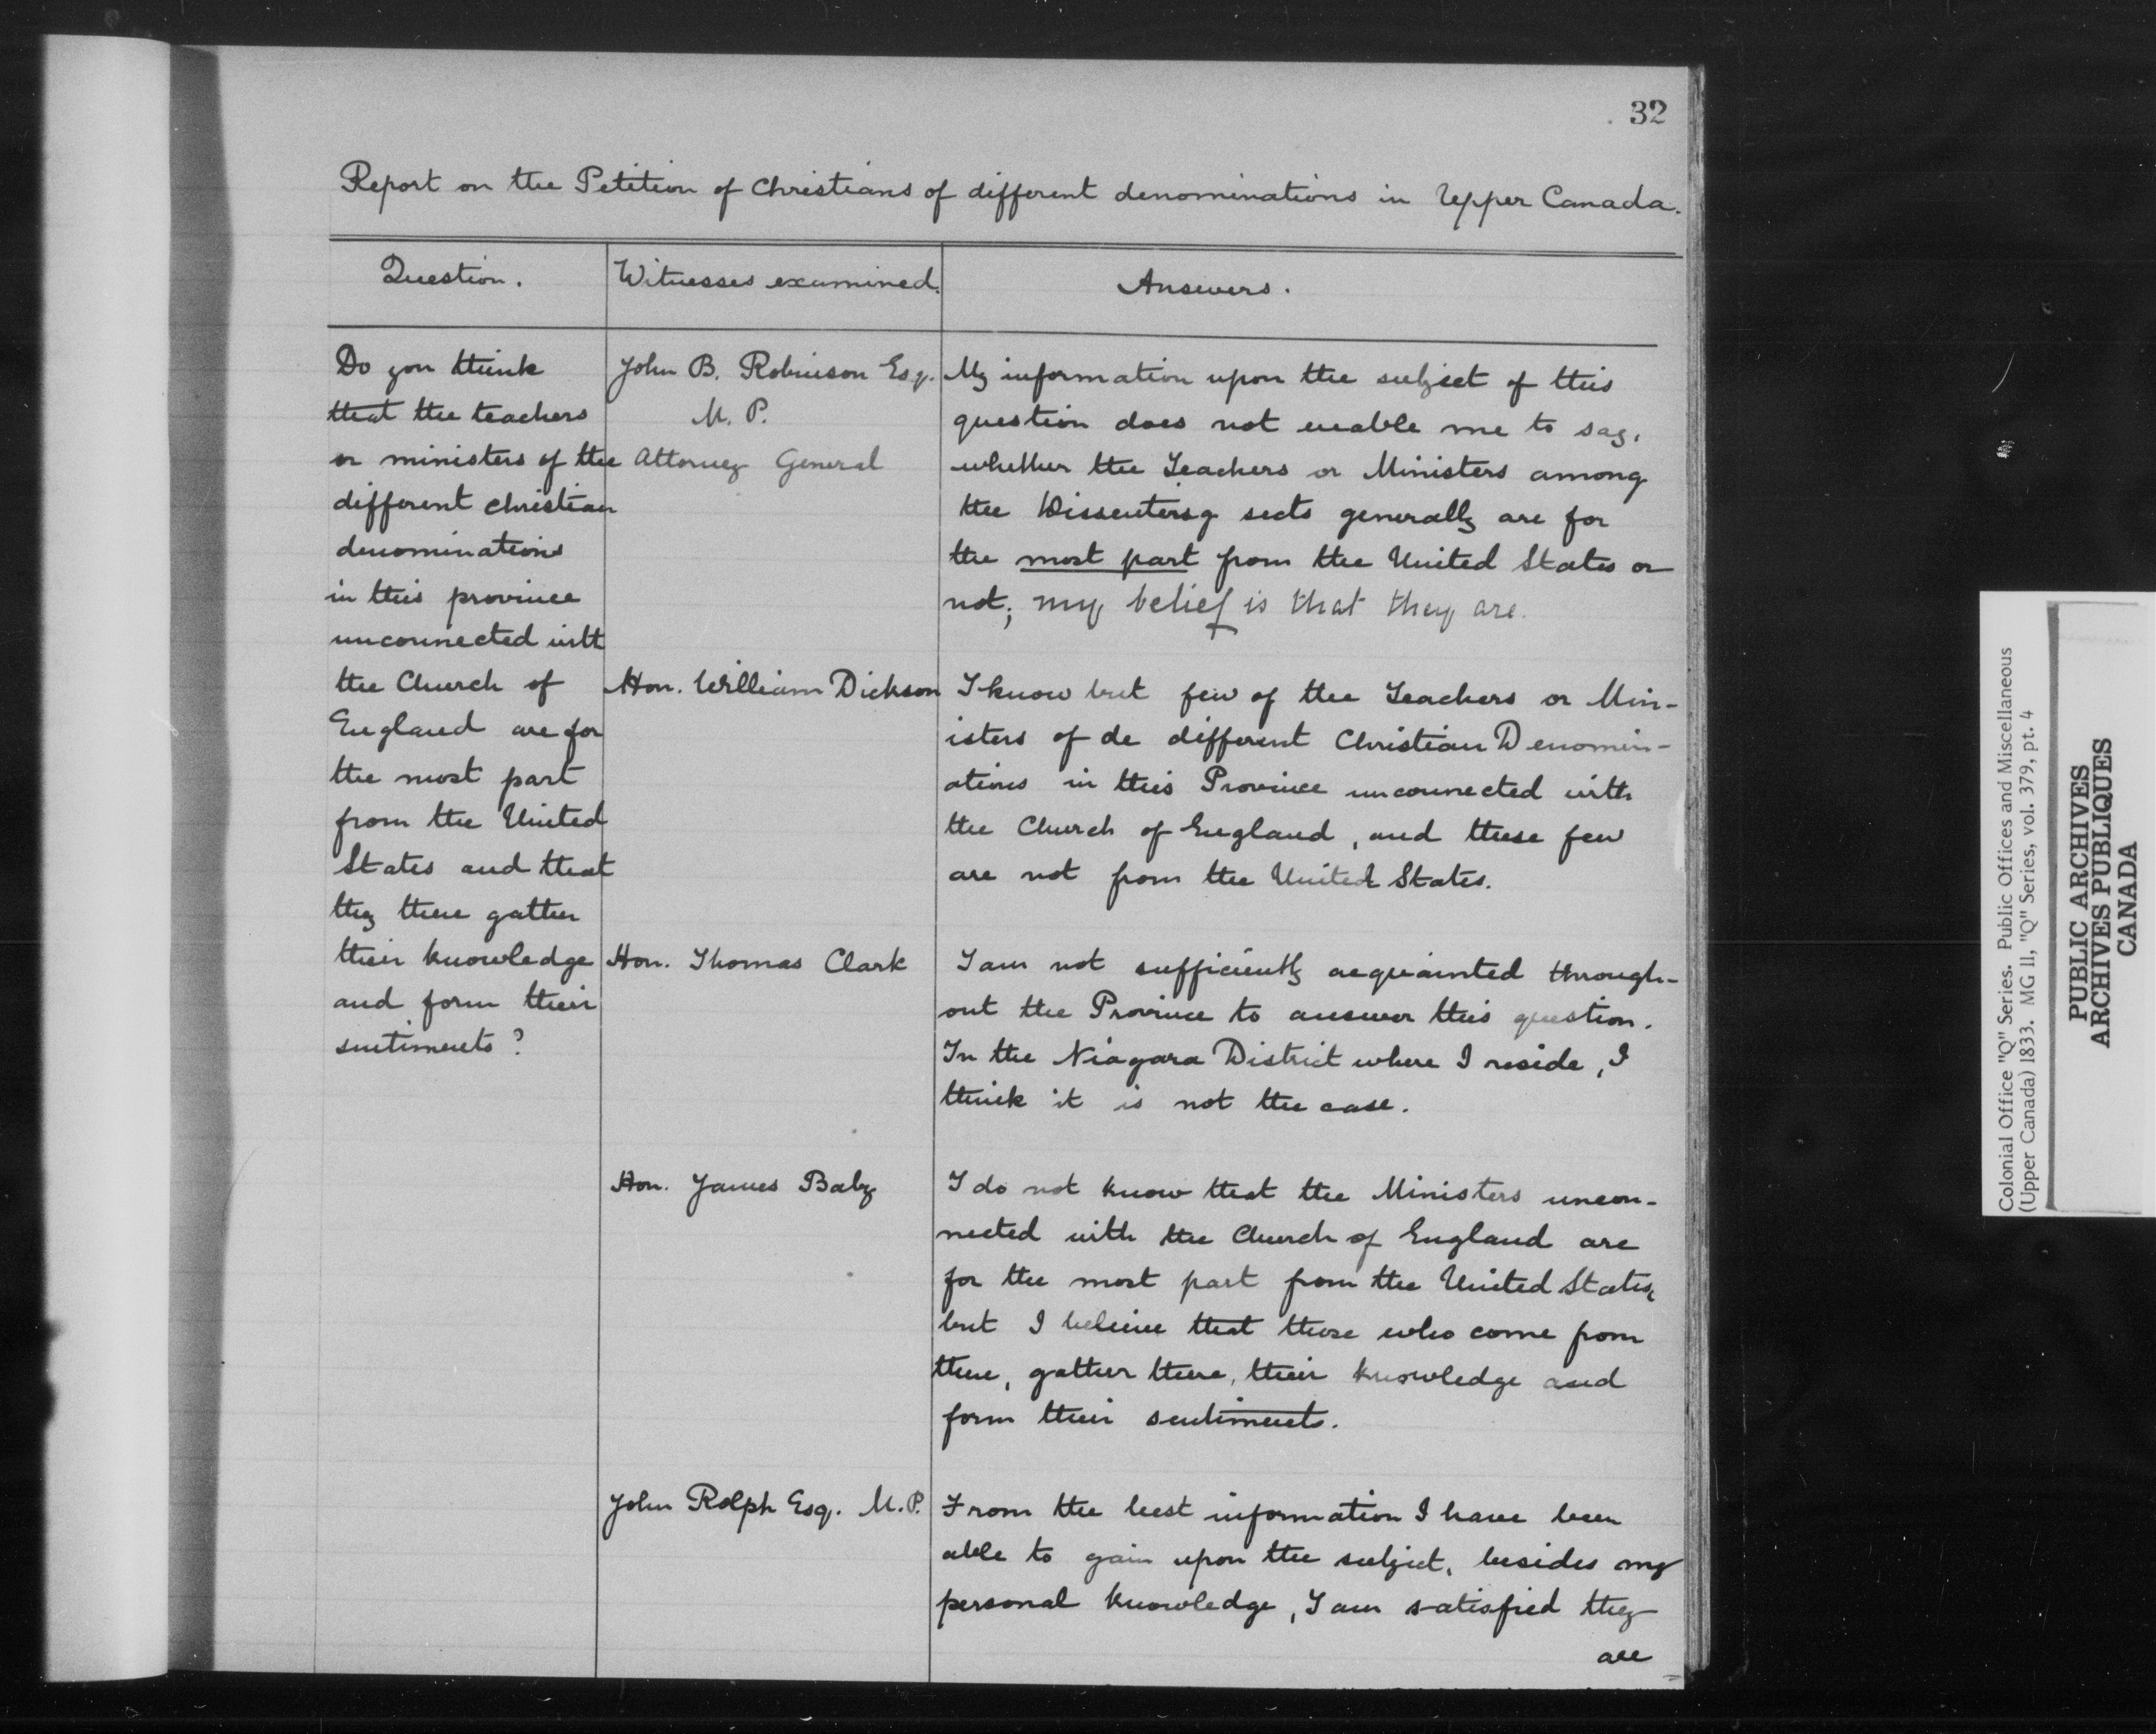 32
Report on the Petition of Christians of different denominations in Upper Canada.
Question.
Witnesses examined.
Answers.
Do you think
that the teachers
or ministers of the
different christian
denominations
in this province
unconnected with
the Church of
England are for
the most part
from the United
States and that
they there gather
their knowledge
and form their
sentiments?
John B. Robinson Esq.
M. P.
Attorney General
My information upon the subject of this
question does not enable me to say,
whether the Teachers or Ministers among
the Dissentersg sects generally are for
the most part from the United States or
not; my belief is that they are.
Hon. William Dickson
I know but few of the Teachers or Min-
isters of de different Christian Denomin-
ations in this Province unconnected with
the Church of England, and these few
are not from the United States.
Hon. Thomas Clark
I am not sufficiently acquainted through-
out the Province to answer this question.
In the Niagara District where I reside, I
think it is not the case.
Hon. James Baby
I do not know that the Ministers uncon-
nected with the Church of England are
for the most part from the United States,
but I believe that those who come from
there, gather there, their knowledge and
form their sentiments.
John Rolph Esq. M.P.
From the best information I have been
able to gain upon the subject, besides my
personal knowledge, I am satisfied they
are
Colonial Office "Q" Series. Public Offices and Miscellaneous
(Upper Canada) 1833. MG 11, "Q" Series, vol. 379, pt. 4
PUBLIC ARCHIVES
ARCHIVES PUBLIQUES
CANADA